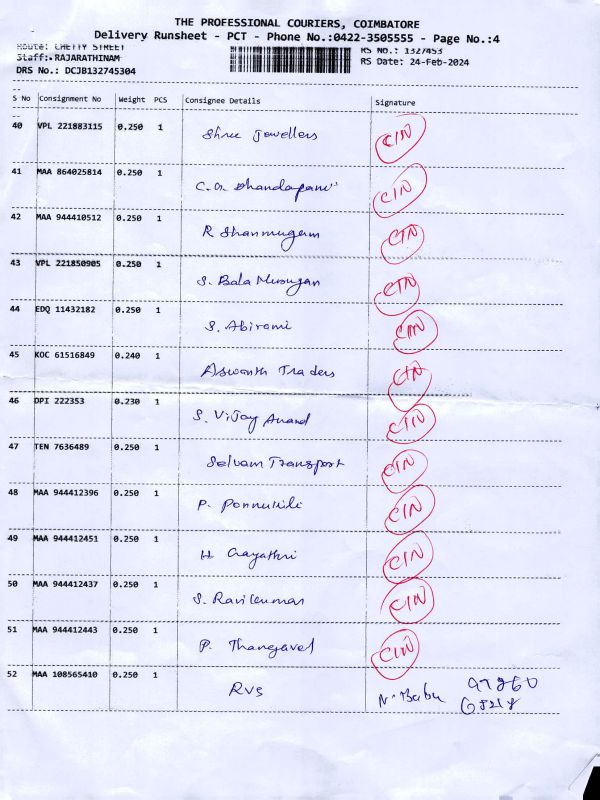 THE PROFESSIONAL COURIERS, COIMBATORE
Delivery Runsheet - PCT - Phone No.:0422-3505555 - Page No.:4
Route: CHETTY STREET RS NO.: 1327453
Staff: RAJARATHINAM RS Date: 24-Feb-2024
DRS No.: DCJB132745304
S No Consignment No Weight PCS Consignee Details Signature
40 VPL 221883115 0.250 1 Shree Jewellers CIN
41 MAA 864025814 0.250 1 C.G. Dhandapani CIN
42 MAA 944410512 0.250 1 R Shanmugam CIN
43 VPL 221850905 0.250 1 S. Bala Murugan CIN
44 EDQ 11432182 0.250 1 S. Abirami CIN
45 KOC 61516849 0.240 1 Aswanth Traders CIN
46 DPI 222353 0.230 1 S. Vijay Anand CIN
47 TEN 7636489 0.250 1 Selvam Transport CIN
48 MAA 944412396 0.250 1 P. Ponnukili CIN
49 MAA 944412451 0.250 1 H Gayathri CIN
50 MAA 944412437 0.250 1 S. Ravikumar CIN
51 MAA 944412443 0.250 1 P. Thangavel CIN
52 MAA 108565410 0.250 1 RVS N. Babu